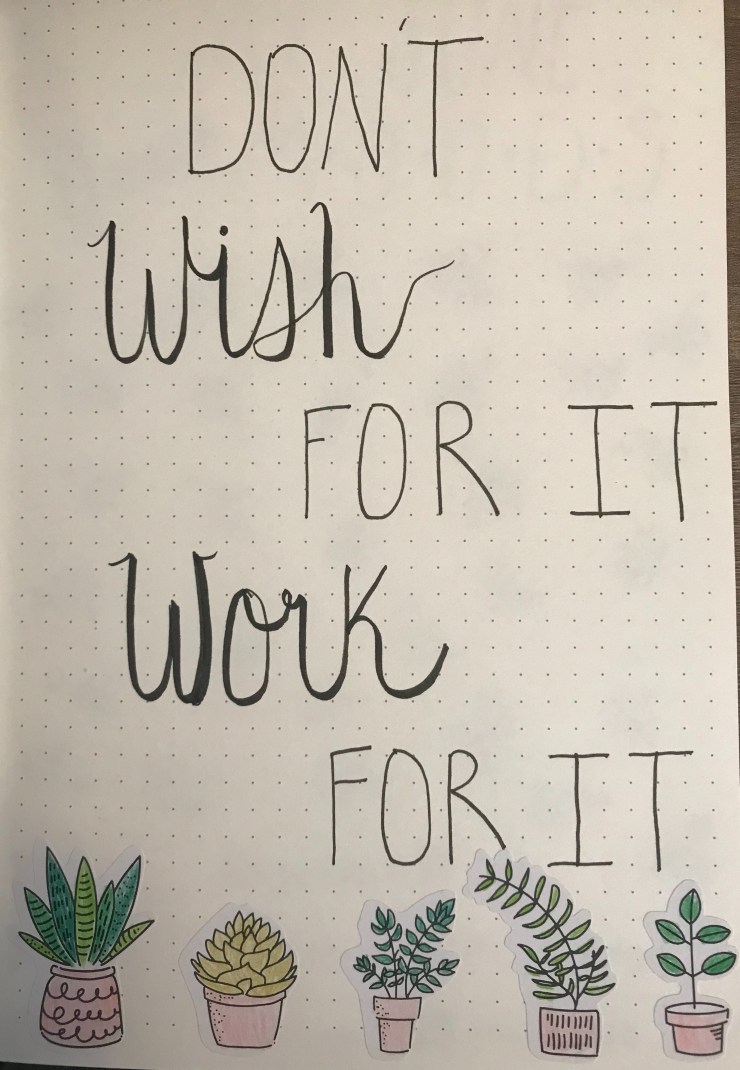 DON'T
Wish
FOR IT
Work
FOR IT